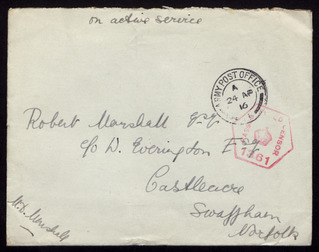 on active service
ARMY POST OFFICE
A
24 AP
16
Robert Marshall Esq
CENSOR
1161
c/o D. Everington Esq
Castleacre
Swaffham
Norfolk
W.D. Marshall